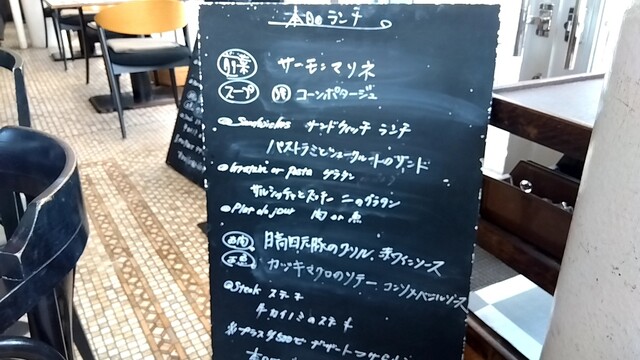 本日のランチ
前菜 サーモンマリネ
スープ コーンポタージュ
Sandwiches サンドウィッチ ランチ
パストラミとシュークルートのサンド
Gratin or Pasta グラタン
サルシッチャとズッキーニのグラタン
Plat du jour 肉 or 魚
お肉 豚のグリル、赤ワインソース
お魚 カジキマグロのソテー コンソメ・バニルソース
Steak ステーキ
牛カイノミのステーキ
※プラス¥500で デザート
本日